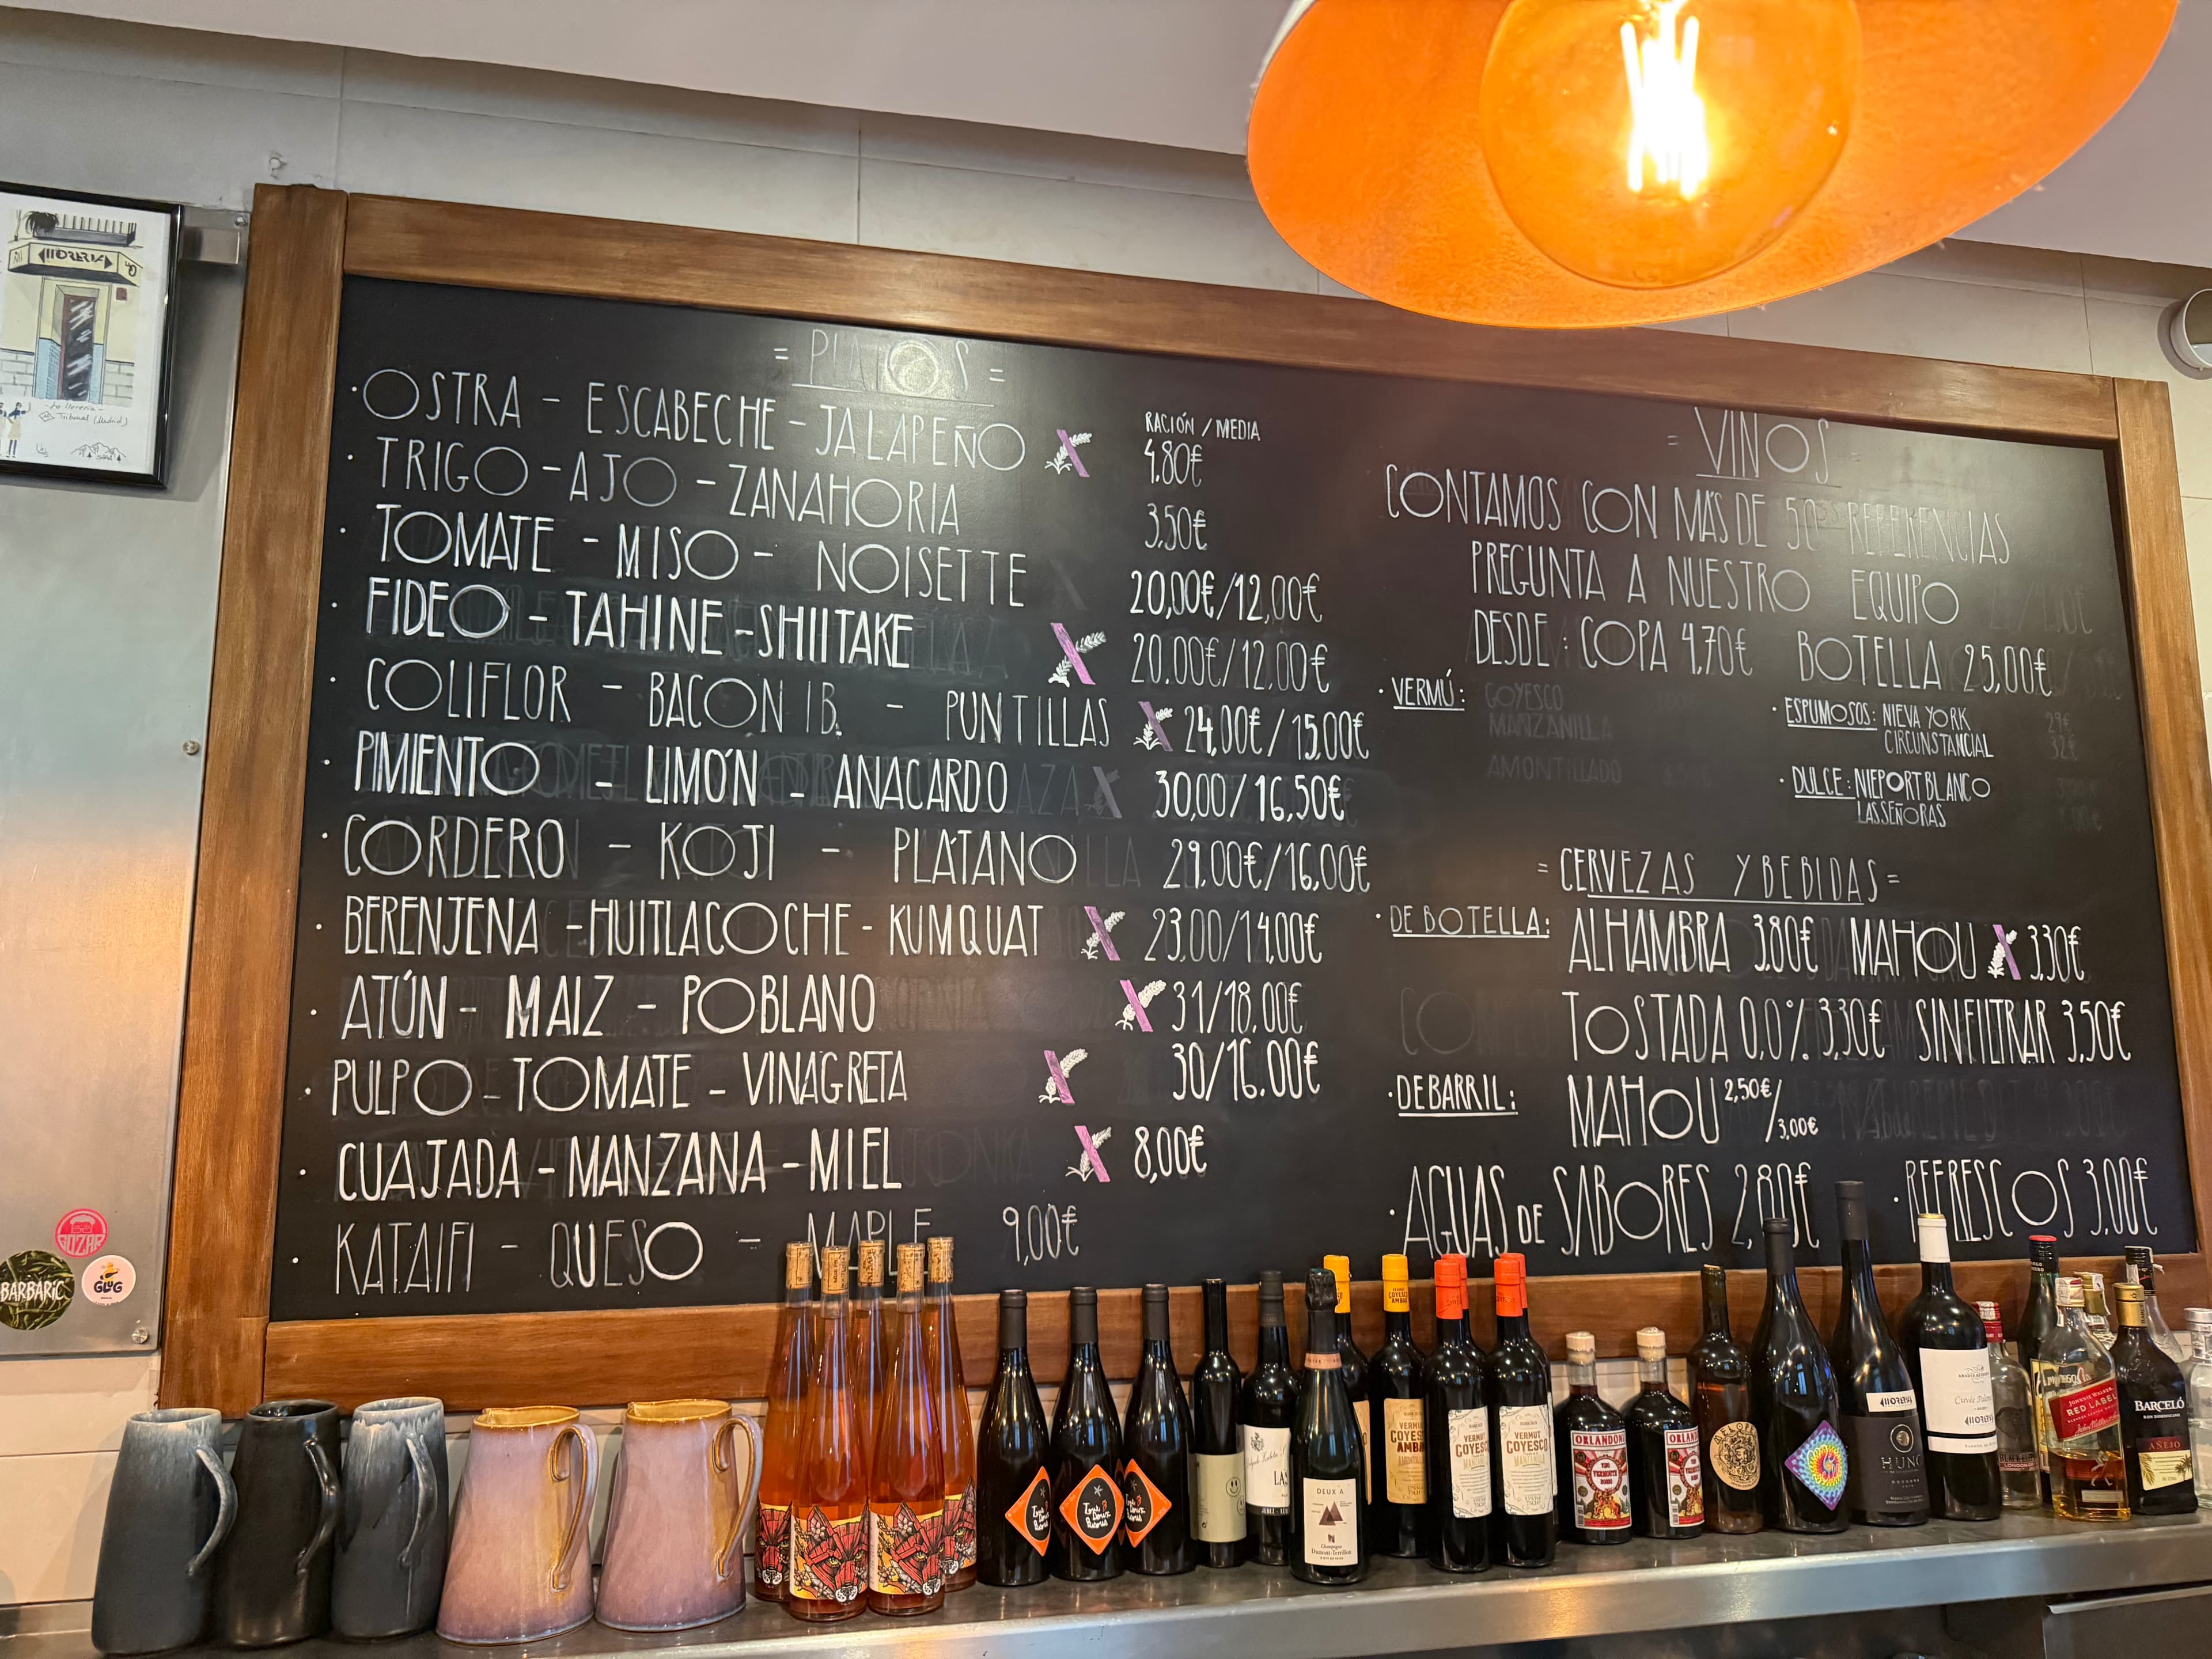 = PLATOS =
RACIÓN / MEDIA
· OSTRA - ESCABECHE - JALAPEÑO 4.80€
· TRIGO - AJO - ZANAHORIA 3.50€
· TOMATE - MISO - NOISETTE 20,00€/12,00€
· FIDEO - TAHINE - SHIITAKE 20.00€/12,00€
· COLIFLOR - BACON IB. - PUNTILLAS 24,00€/15,00€
· PIMIENTO - LIMÓN - ANACARDO 30,00/16,50€
· CORDERO - KOJI - PLÁTANO 29,00€/16,00€
· BERENJENA - HUITLACOCHE - KUMQUAT 23,00/14,00€
· ATÚN - MAIZ - POBLANO 31/18.00€
· PULPO - TOMATE - VINAGRETA 30/16.00€
· CUAJADA - MANZANA - MIEL 8,00€
· KATAIFI - QUESO - MAPLE 9,00€
= VINOS =
CONTAMOS CON MÁS DE 50 REFERENCIAS
PREGUNTA A NUESTRO EQUIPO
DESDE : COPA 4,70€ BOTELLA 25,00€
· VERMÚ: GOYESCO
MANZANILLA
AMONTILLADO
· ESPUMOSOS: NIEVA YORK 29€
CIRCUNSTANCIAL 32€
· DULCE: NIEPORT BLANCO
LAS SEÑORAS
= CERVEZAS Y BEBIDAS =
· DE BOTELLA: ALHAMBRA 3,80€ MAHOU 3,30€
TOSTADA 0,0% 3,30€ SIN FILTRAR 3,50€
· DE BARRIL: MAHOU 2,50€/3,00€
· AGUAS DE SABORES 2,80€ · REFRESCOS 3,00€
LLORERÍA
- La llorería -
Tribunal (Madrid)
GOZAR
BARBARIC
GLUG
DEUX A
Champagne
Dumont-Terrillon
VERMUT
GOYESCO
AMBAR
VERMUT
GOYESCO
MANZANILLA
VERMUT
GOYESCO
MANZANILLA
ORLANDONI
VERMOUTH
ORLANDONI
VERMOUTH
HUNO
JOHNNIE WALKER
RED LABEL
BARCELÓ
AÑEJO